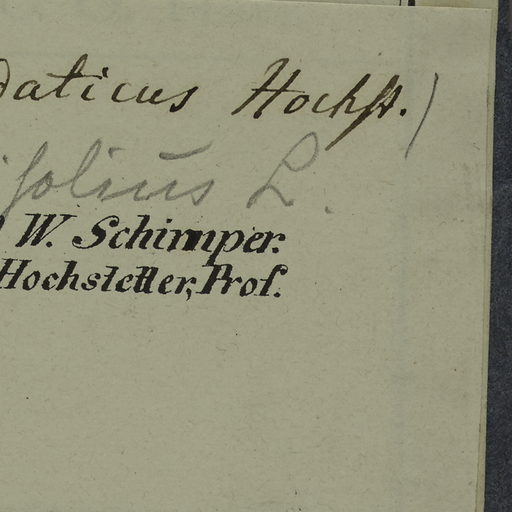 daticus Hochst.)
ifolius L.
W. Schimper.
Hochstetter, Prof.